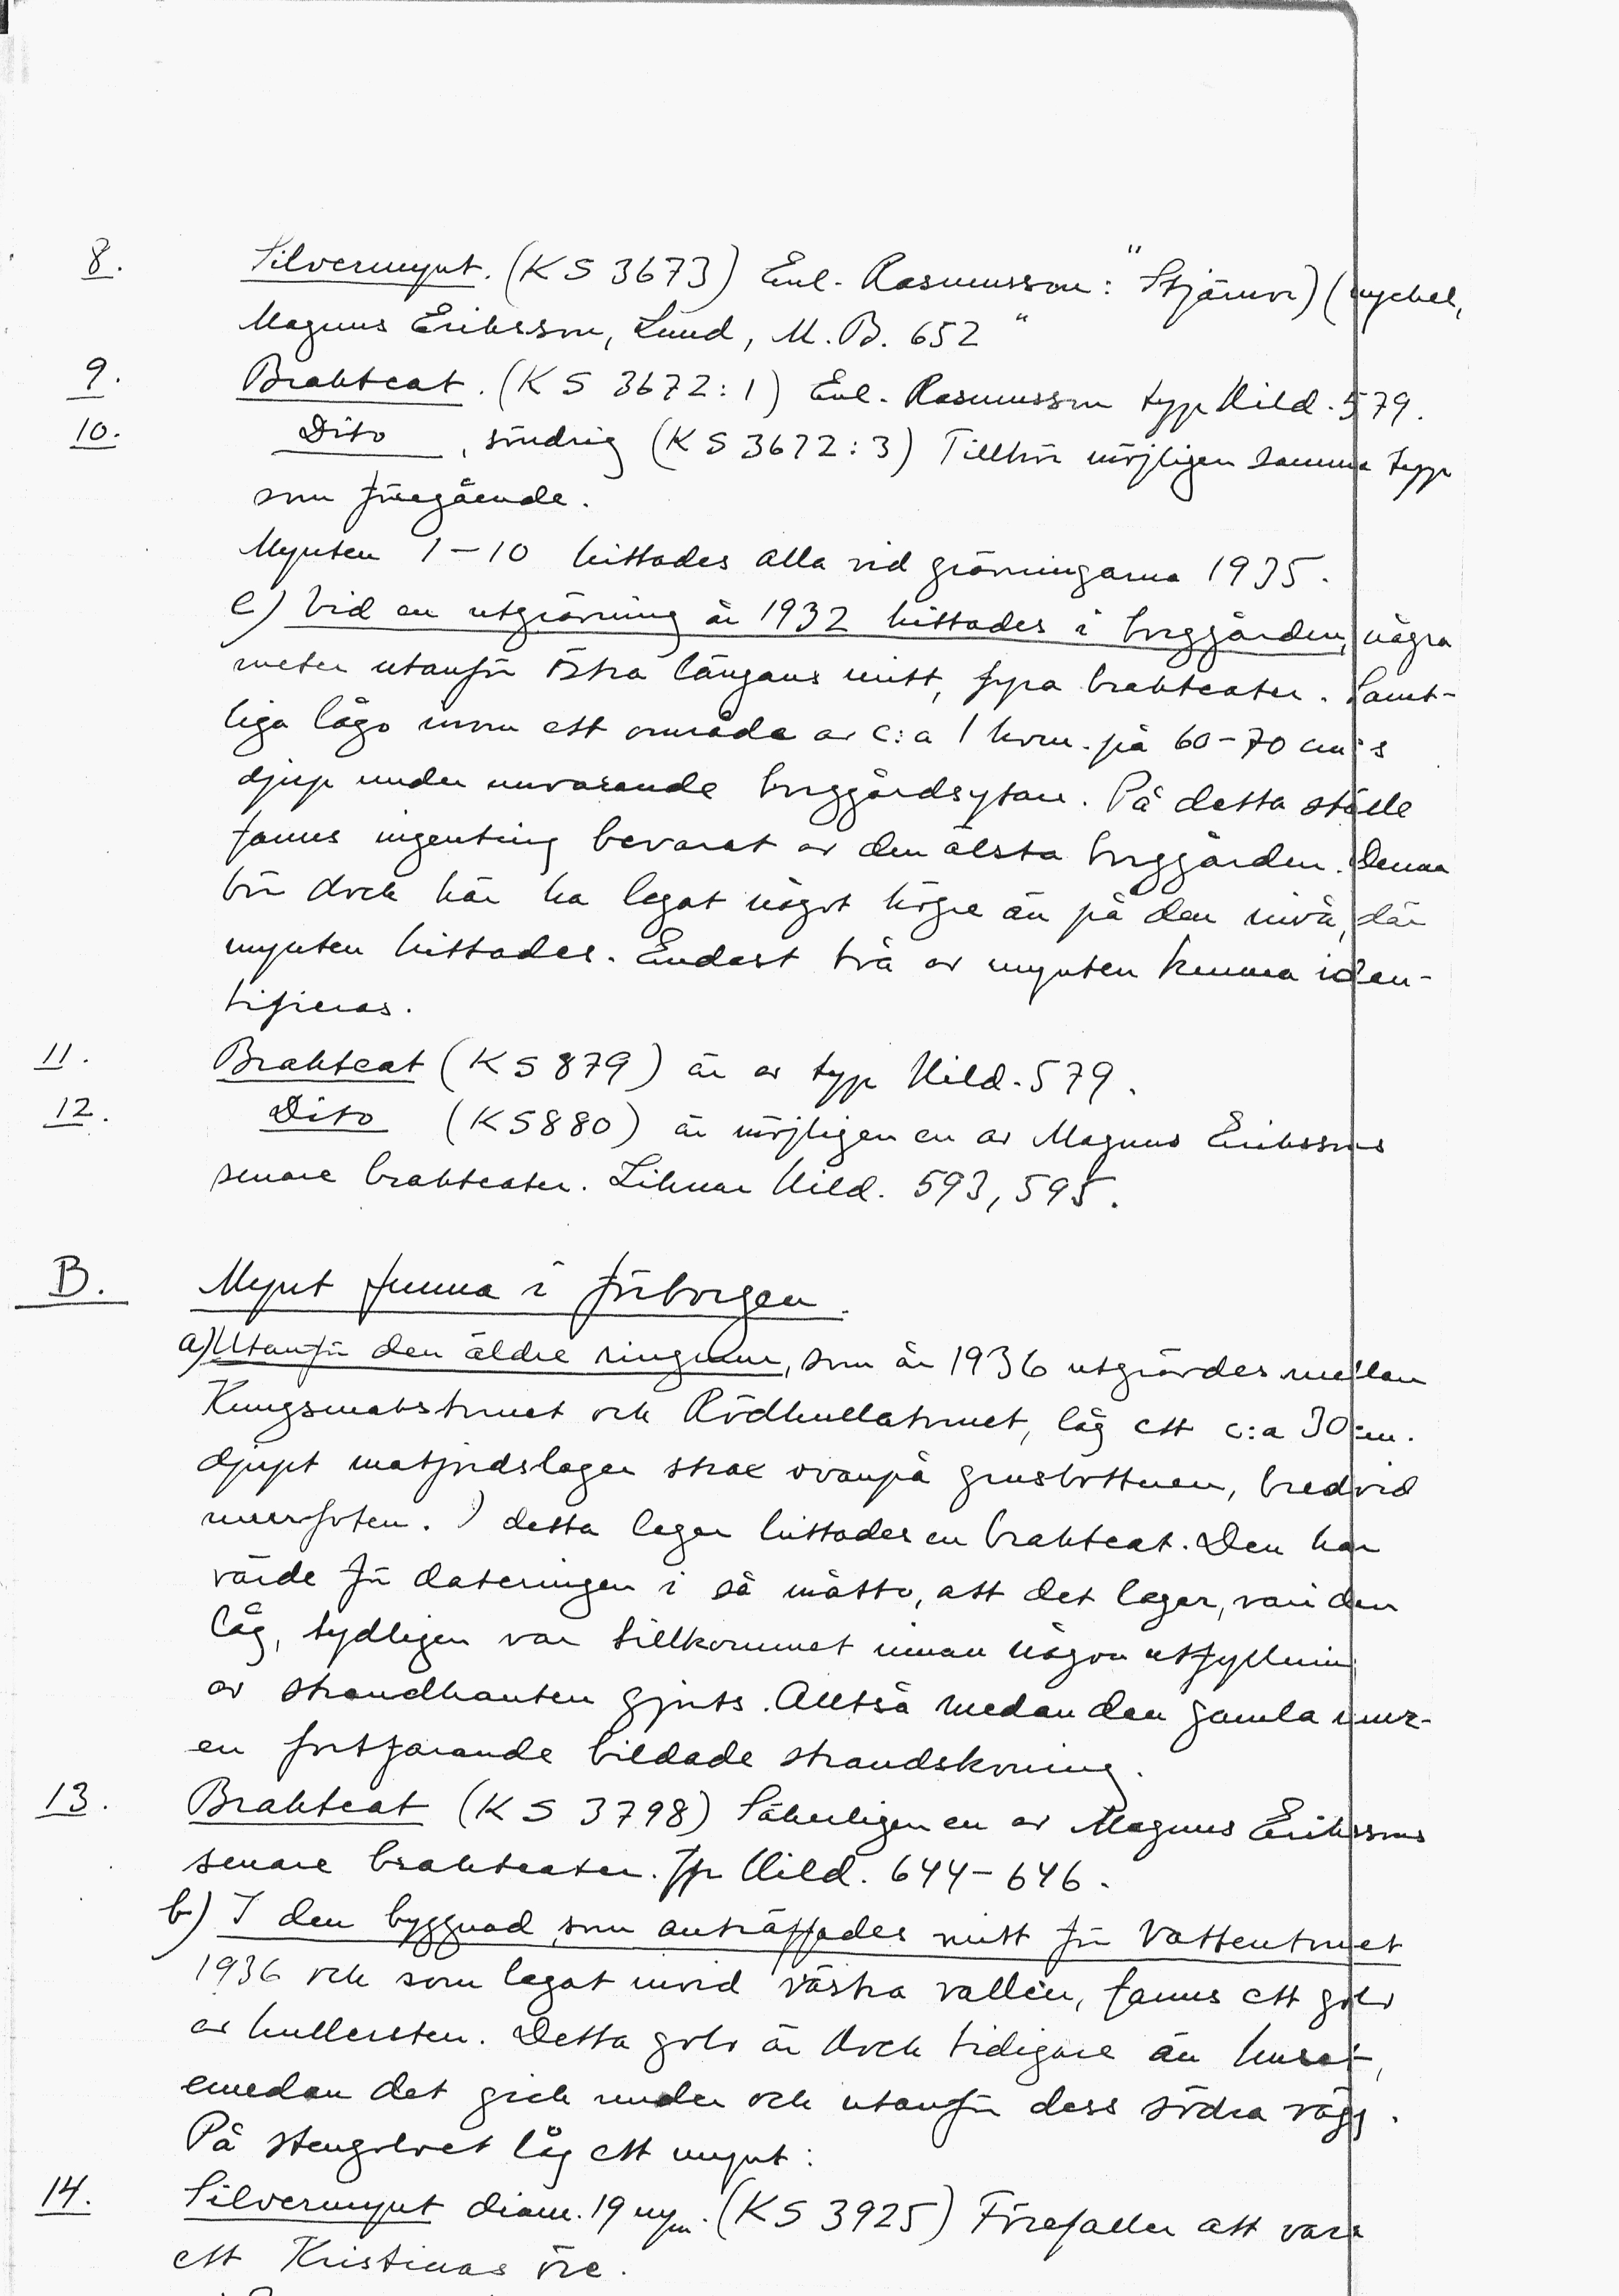 8. Silvermynt. (KS 3673) Enl. Rasmusson: "Stjärna) (nyckel,
Magnus Eriksson, Lund, M.B. 652"
9. Brakteat. (KS 3672:1) Enl. Rasmusson typ Hild. 579.
10. Dito, söndrig (KS 3672:3) Tillhör möjligen samma typ
som föregående.
Mynten 1-10 hittades alla vid grävningarna 1935.
e) Vid en utgrävning år 1932 hittades i borggården, några
meter utanför östra längans mitt, fyra brakteater. Samt-
liga lågo inom ett område av c:a 1 kvm. på 60-70 cm:s
djup under nuvarande borggårdsytan. På detta ställe
fanns ingenting bevarat av den älsta borggården. Denna
bör dock här ha legat något högre än på den nivå, där
mynten hittades. Endast två av mynten kunna iden-
tifieras.
11. Brakteat (KS 879) är av typ Hild. 579.
12. Dito (KS 880) är möjligen en av Magnus Erikssons
senare brakteater. Liknar Hild. 593, 595.
B. Mynt funna i förborgen.
a) Utanför den äldre ringmur, som år 1936 utgrävdes mellan
Kungsmakstornet och Rödkullatornet, låg ett c:a 30 cm.
djupt matjordslager strax ovanpå grusbottnen, bredvid
murfoten. I detta lager hittades en brakteat. Den har
värde för dateringen i så måtto, att det lager, vari den
låg, tydligen var tillkommet innan någon utfyllning
av strandkanten gjorts. Alltså medan den gamla mur-
en fortfarande bildade strandskoning.
13. Brakteat (KS 3798) Säkerligen en av Magnus Erikssons
senare brakteater. Jfr Hild. 644-646.
b) I den byggnad, som anträffades mitt för Vattentornet
1936 och som legat invid västra vallen, fanns ett golv
av kullersten. Detta golv är dock tidigare än huset,
emedan det gick under och utanför dess södra vägg.
På stengolvet låg ett mynt:
14. Silvermynt diam. 19 mm. (KS 3925) Förefaller att vara
ett Kristinas öre.